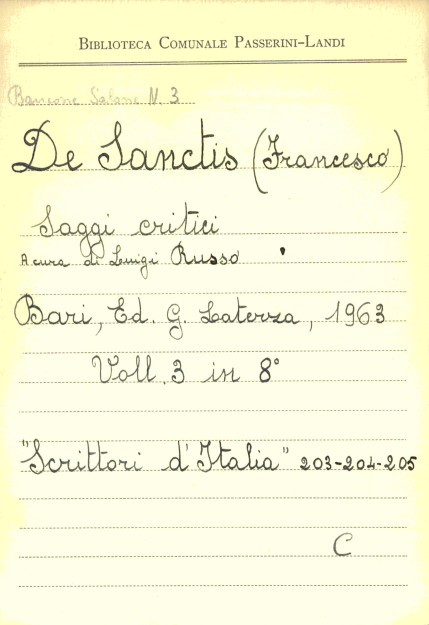 BIBLIOTECA COMUNALE PASSERINI-LANDI
Bancone Salone N. 3
De Sanctis (Francesco)
Saggi critici
A cura di Luigi Russo
Bari, Ed. G. Laterza, 1963
Voll. 3 in 8°
"Scrittori d'Italia" 203-204-205
C